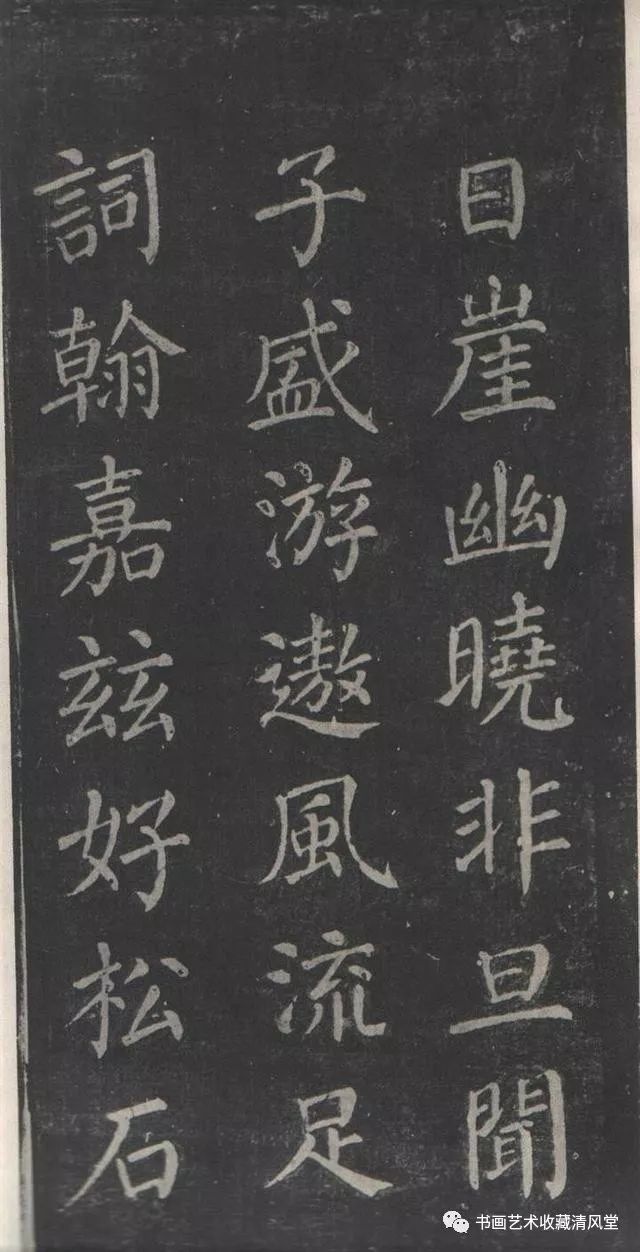 日崖幽曉非旦聞
子盛游遨風流足
詞翰嘉兹好松石
书画艺术收藏清风堂